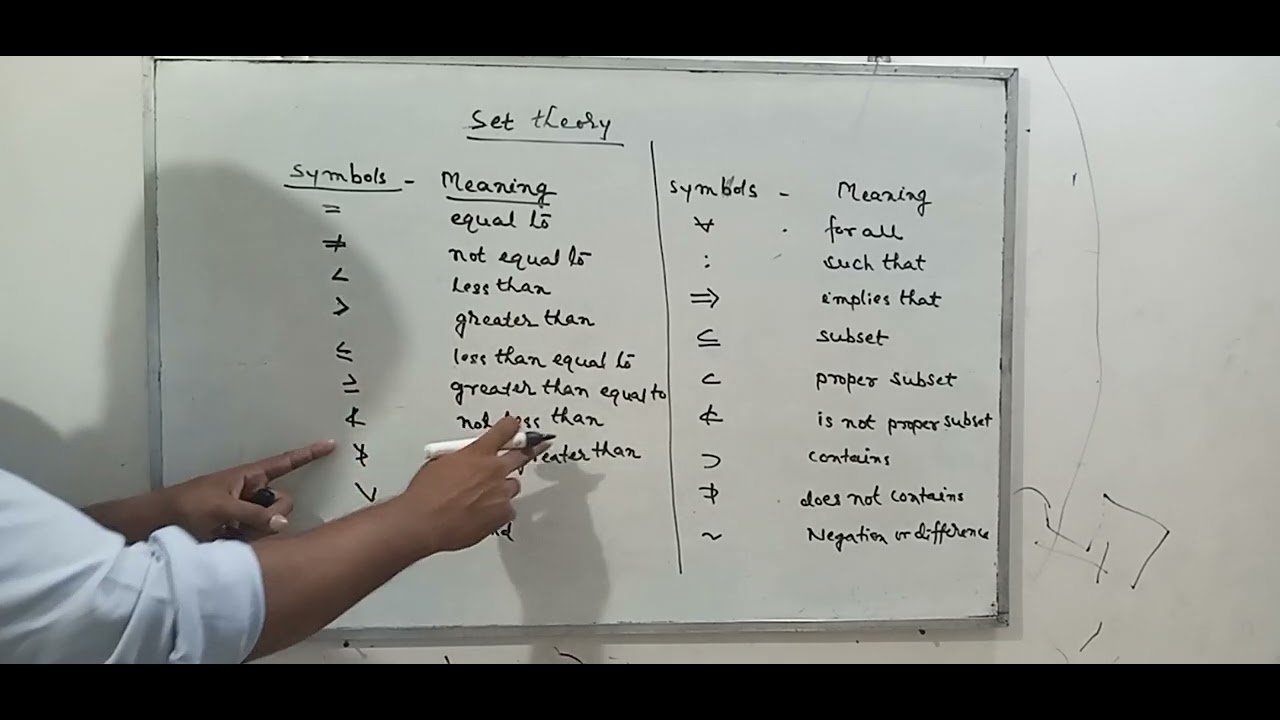 Set theory
Symbols - Meaning
= equal to
≠ not equal to
< less than
> greater than
≤ less than equal to
≥ greater than equal to
≮ not less than
≯ greater than
∨
symbols - Meaning
∀ for all
: such that
⇒ implies that
⊆ subset
⊂ proper subset
⊄ is not proper subset
⊃ contains
⊅ does not contains
~ Negation or difference